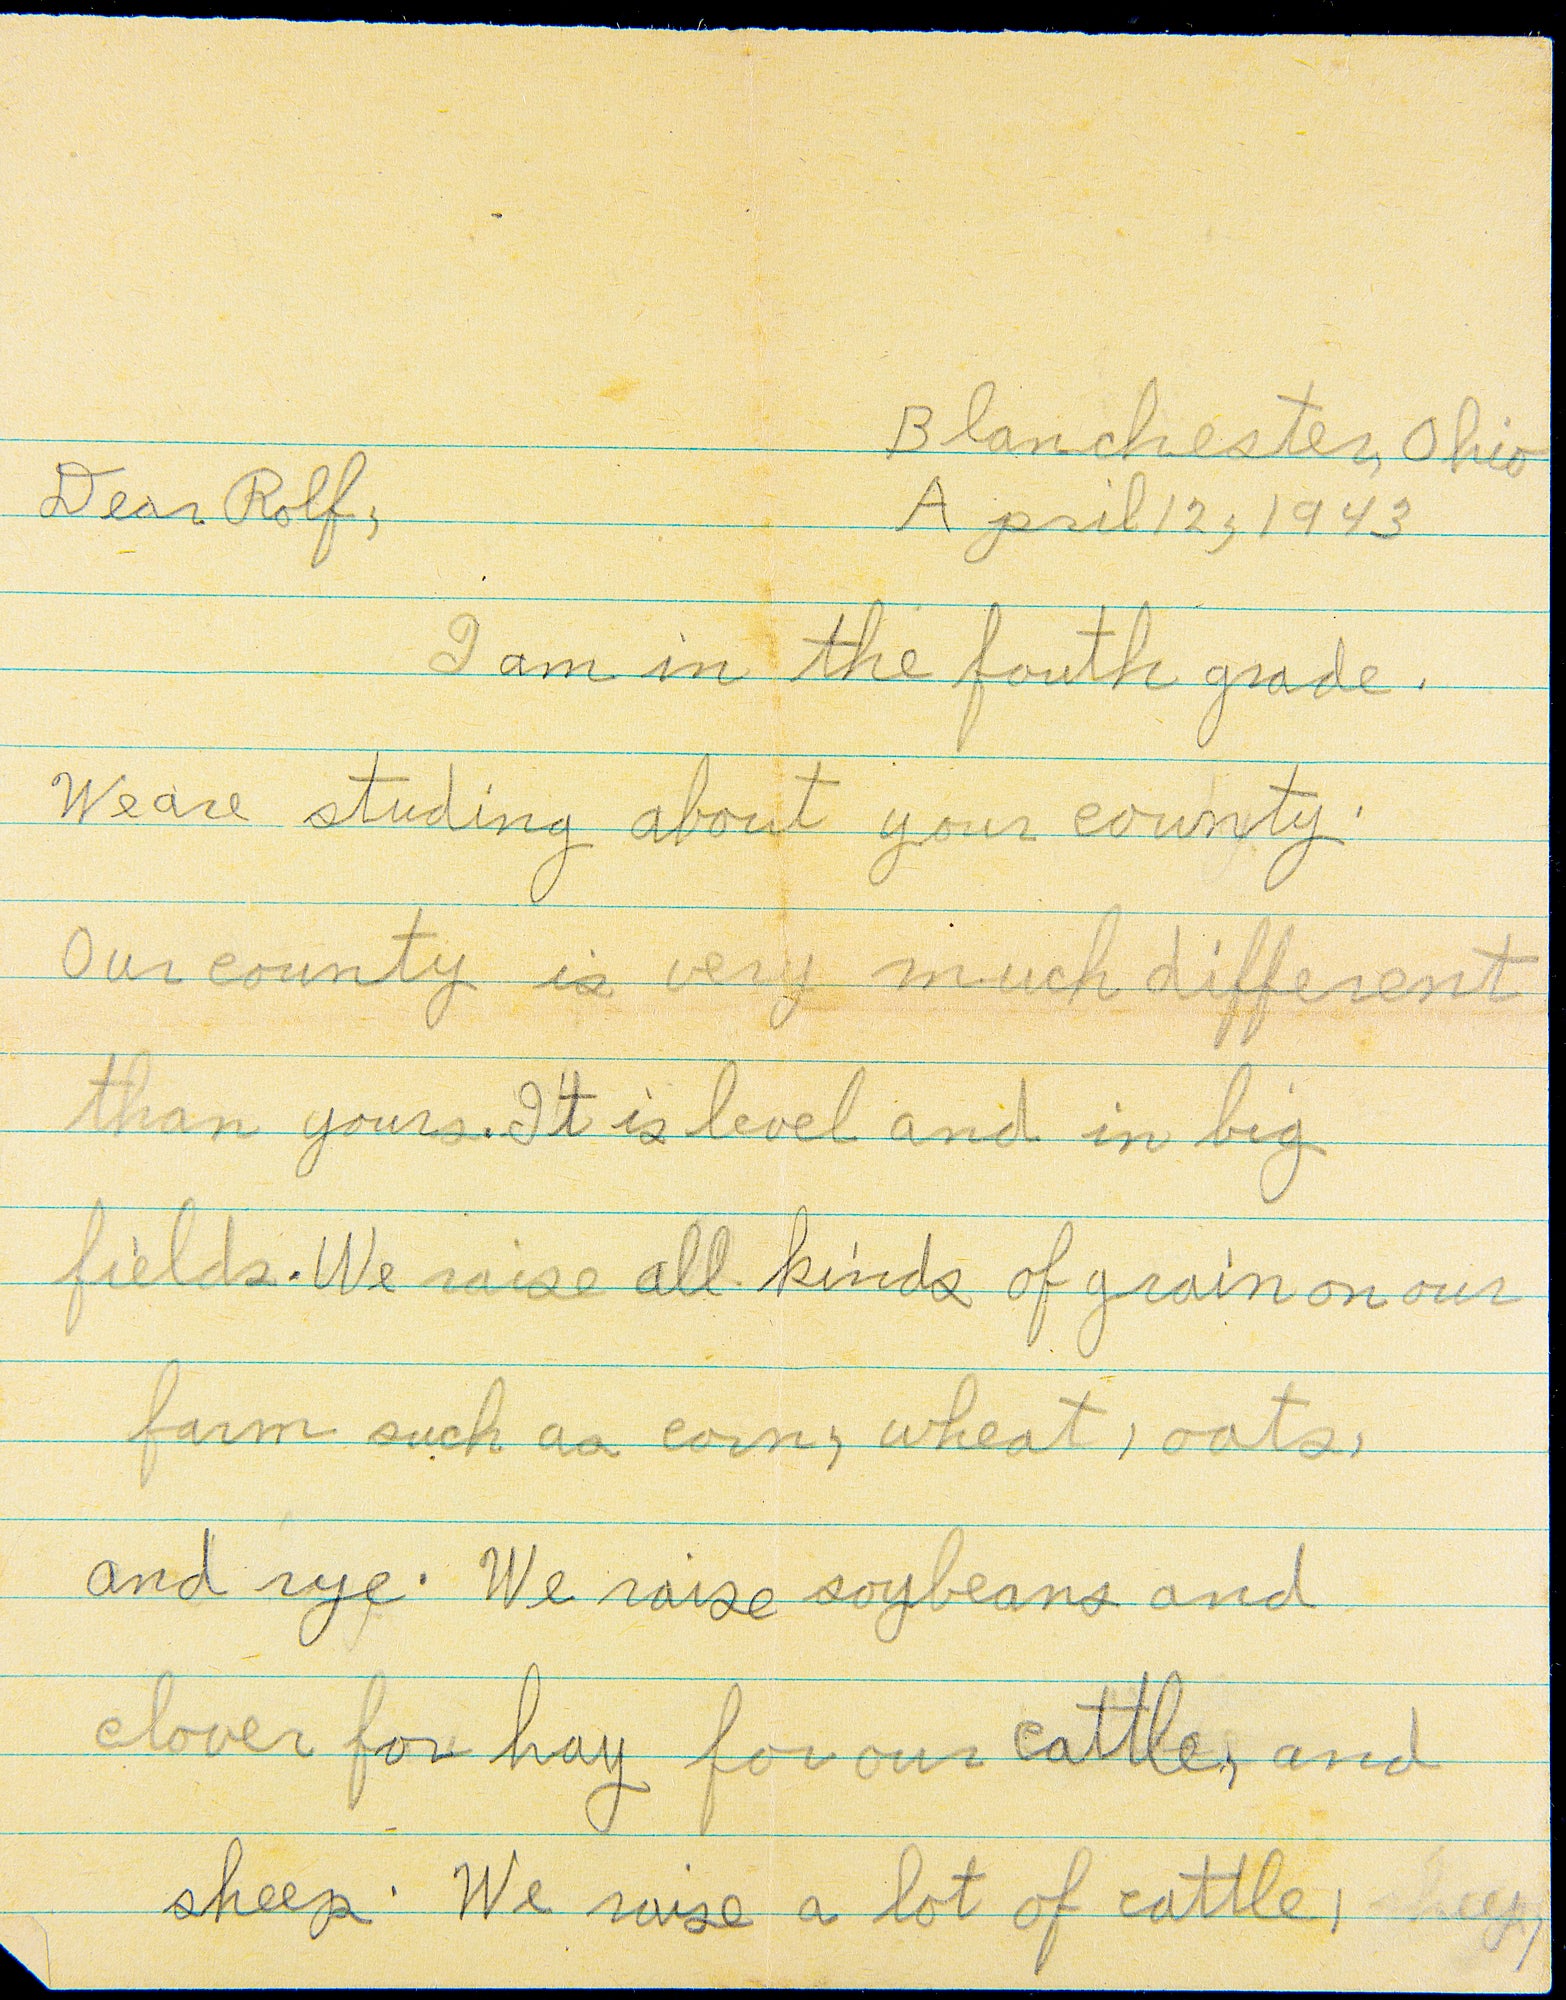 Blanchester, Ohio
Dear Rolf,
April 12, 1943
I am in the fouth grade.
We are studing about your county.
Our county is very much different
than yours. It is level and in big
fields. We raise all kinds of grain on our
farm such as corn, wheat, oats,
and rye. We raise soybeans and
clover for hay for our cattle, and
sheep. We raise a lot of cattle, sheep,